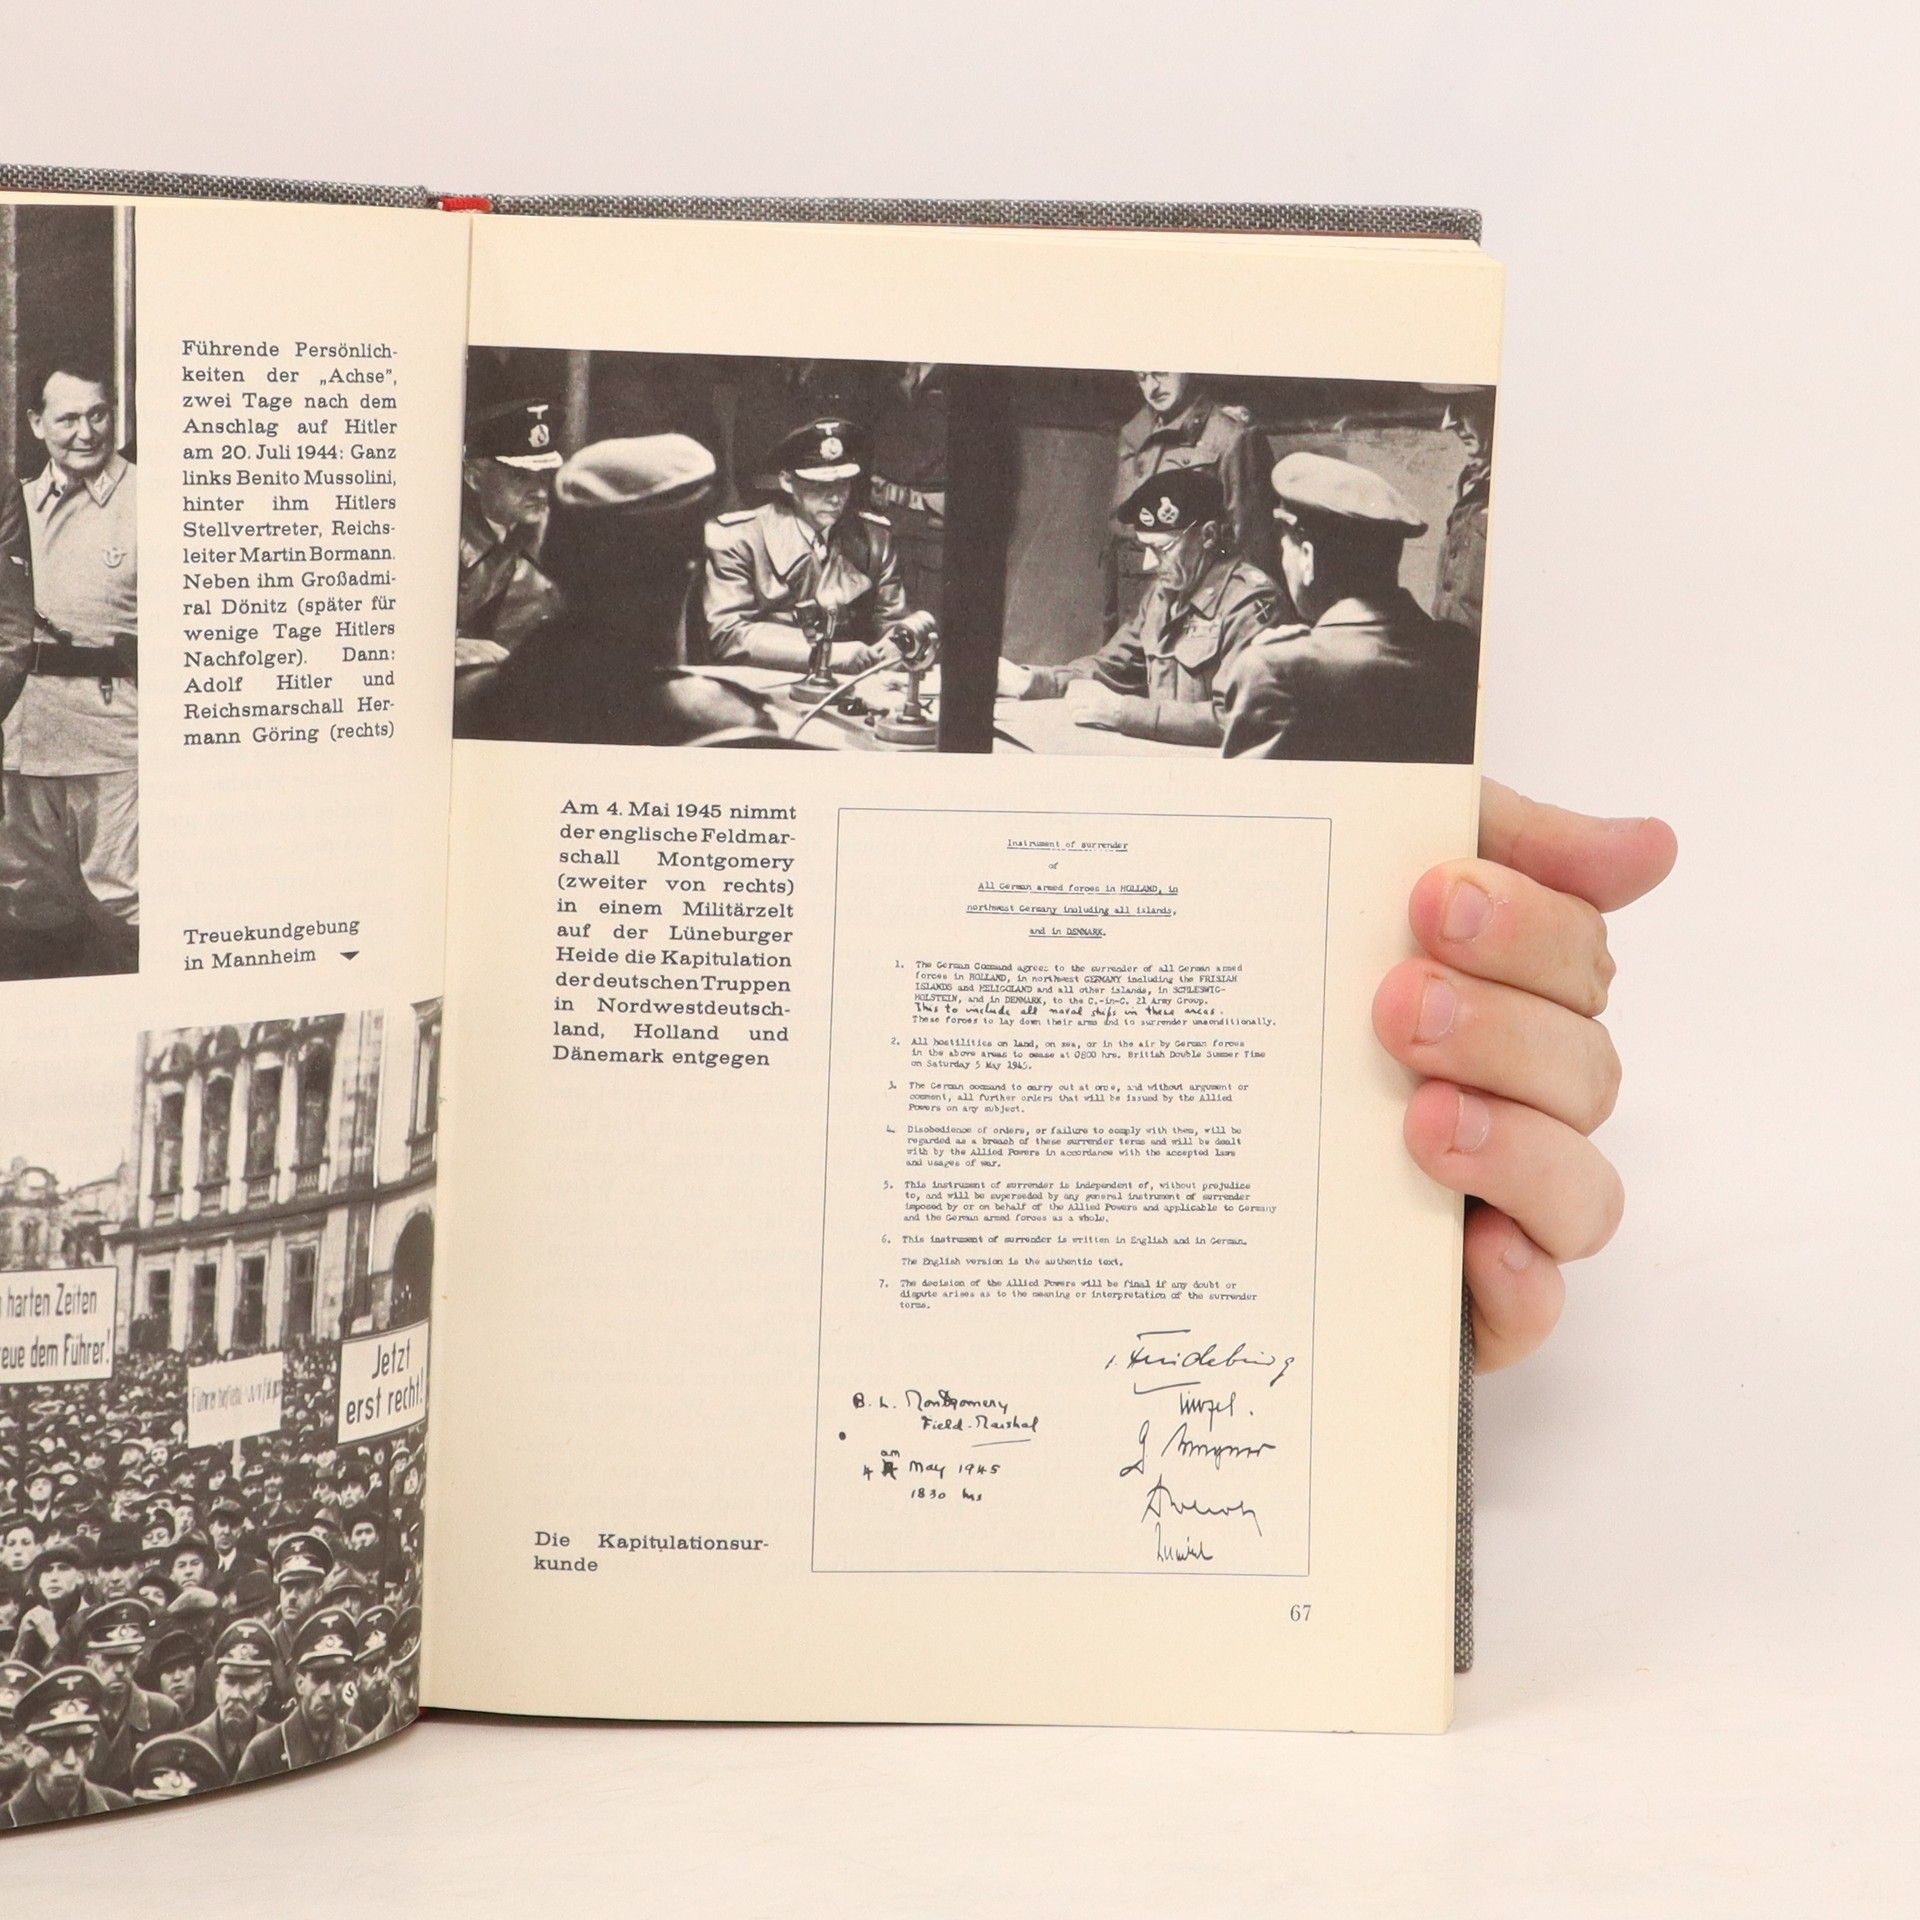 Führende Persönlich-
keiten der „Achse”,
zwei Tage nach dem
Anschlag auf Hitler
am 20. Juli 1944: Ganz
links Benito Mussolini,
hinter ihm Hitlers
Stellvertreter, Reichs-
leiter Martin Bormann.
Neben ihm Großadmi-
ral Dönitz (später für
wenige Tage Hitlers
Nachfolger). Dann:
Adolf Hitler und
Reichsmarschall Her-
mann Göring (rechts)
Treuekundgebung
in Mannheim
harten Zeiten
dem Führer!
Jetzt
erst recht!
Am 4. Mai 1945 nimmt
der englische Feldmar-
schall Montgomery
(zweiter von rechts)
in einem Militärzelt
auf der Lüneburger
Heide die Kapitulation
der deutschen Truppen
in Nordwestdeutsch-
land, Holland und
Dänemark entgegen
Die Kapitulationsur-
kunde
Instrument of surrender
of
All German armed forces in HOLLAND, in
northwest Germany including all islands,
and in DENMARK.
1. The German Command agrees to the surrender of all German armed
forces in HOLLAND, in northwest GERMANY including the FRISIAN
ISLANDS and HELIGOLAND and all other islands, in SCHLESWIG-
HOLSTEIN, and in DENMARK, to the C.-in-C. 21 Army Group.
This to include all naval ships in these areas.
These forces to lay down their arms and to surrender unconditionally.
2. All hostilities on land, on sea, or in the air by German forces
in the above areas to cease at 0800 hrs. British Double Summer Time
on Saturday 5 May 1945.
3. The German command to carry out at once, and without argument or
comment, all further orders that will be issued by the Allied
Powers on any subject.
4. Disobedience of orders, or failure to comply with them, will be
regarded as a breach of these surrender terms and will be dealt
with by the Allied Powers in accordance with the accepted laws
and usages of war.
5. This instrument of surrender is independent of, without prejudice
to, and will be superseded by any general instrument of surrender
imposed by or on behalf of the Allied Powers and applicable to Germany
and the German armed forces as a whole.
6. This instrument of surrender is written in English and in German.
The English version is the authentic text.
7. The decision of the Allied Powers will be final if any doubt or
dispute arises as to the meaning or interpretation of the surrender
terms.
B. L. Montgomery
Field-Marshal
4 May 1945
1830 hrs
67